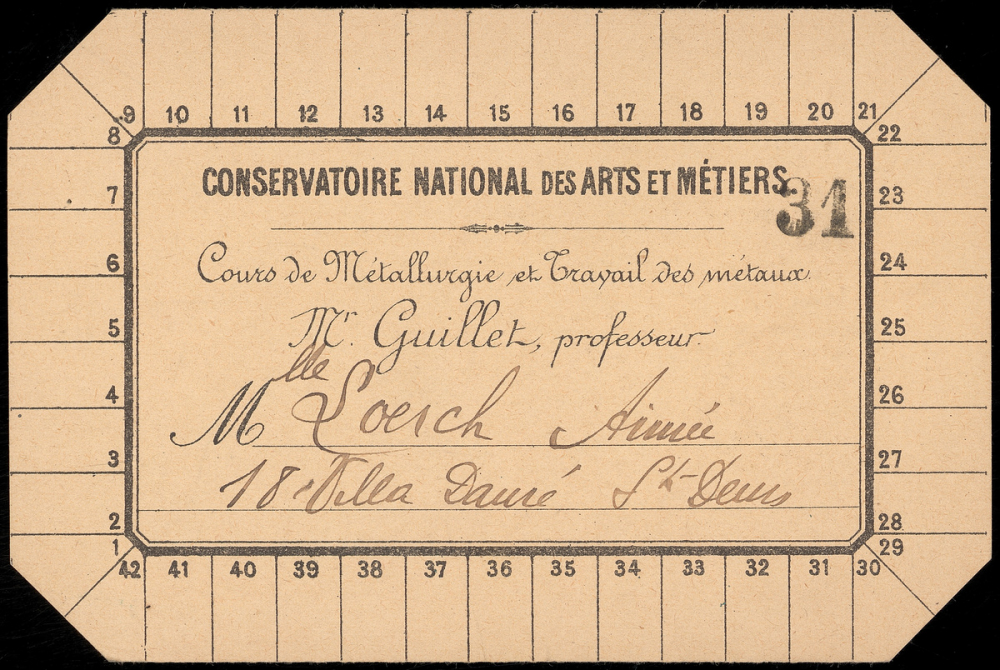 9 10 11 12 13 14 15 16 17 18 19 20 21
8 22
CONSERVATOIRE NATIONAL DES ARTS ET MÉTIERS
31
7 23
Cours de Métallurgie et Travail des métaux
6 24
Mr. Guillet, professeur
5 25
Mlle Loesch Aimée
4 26
3 27
18 Villa Daure St-Denis
2 28
1 29
42 41 40 39 38 37 36 35 34 33 32 31 30